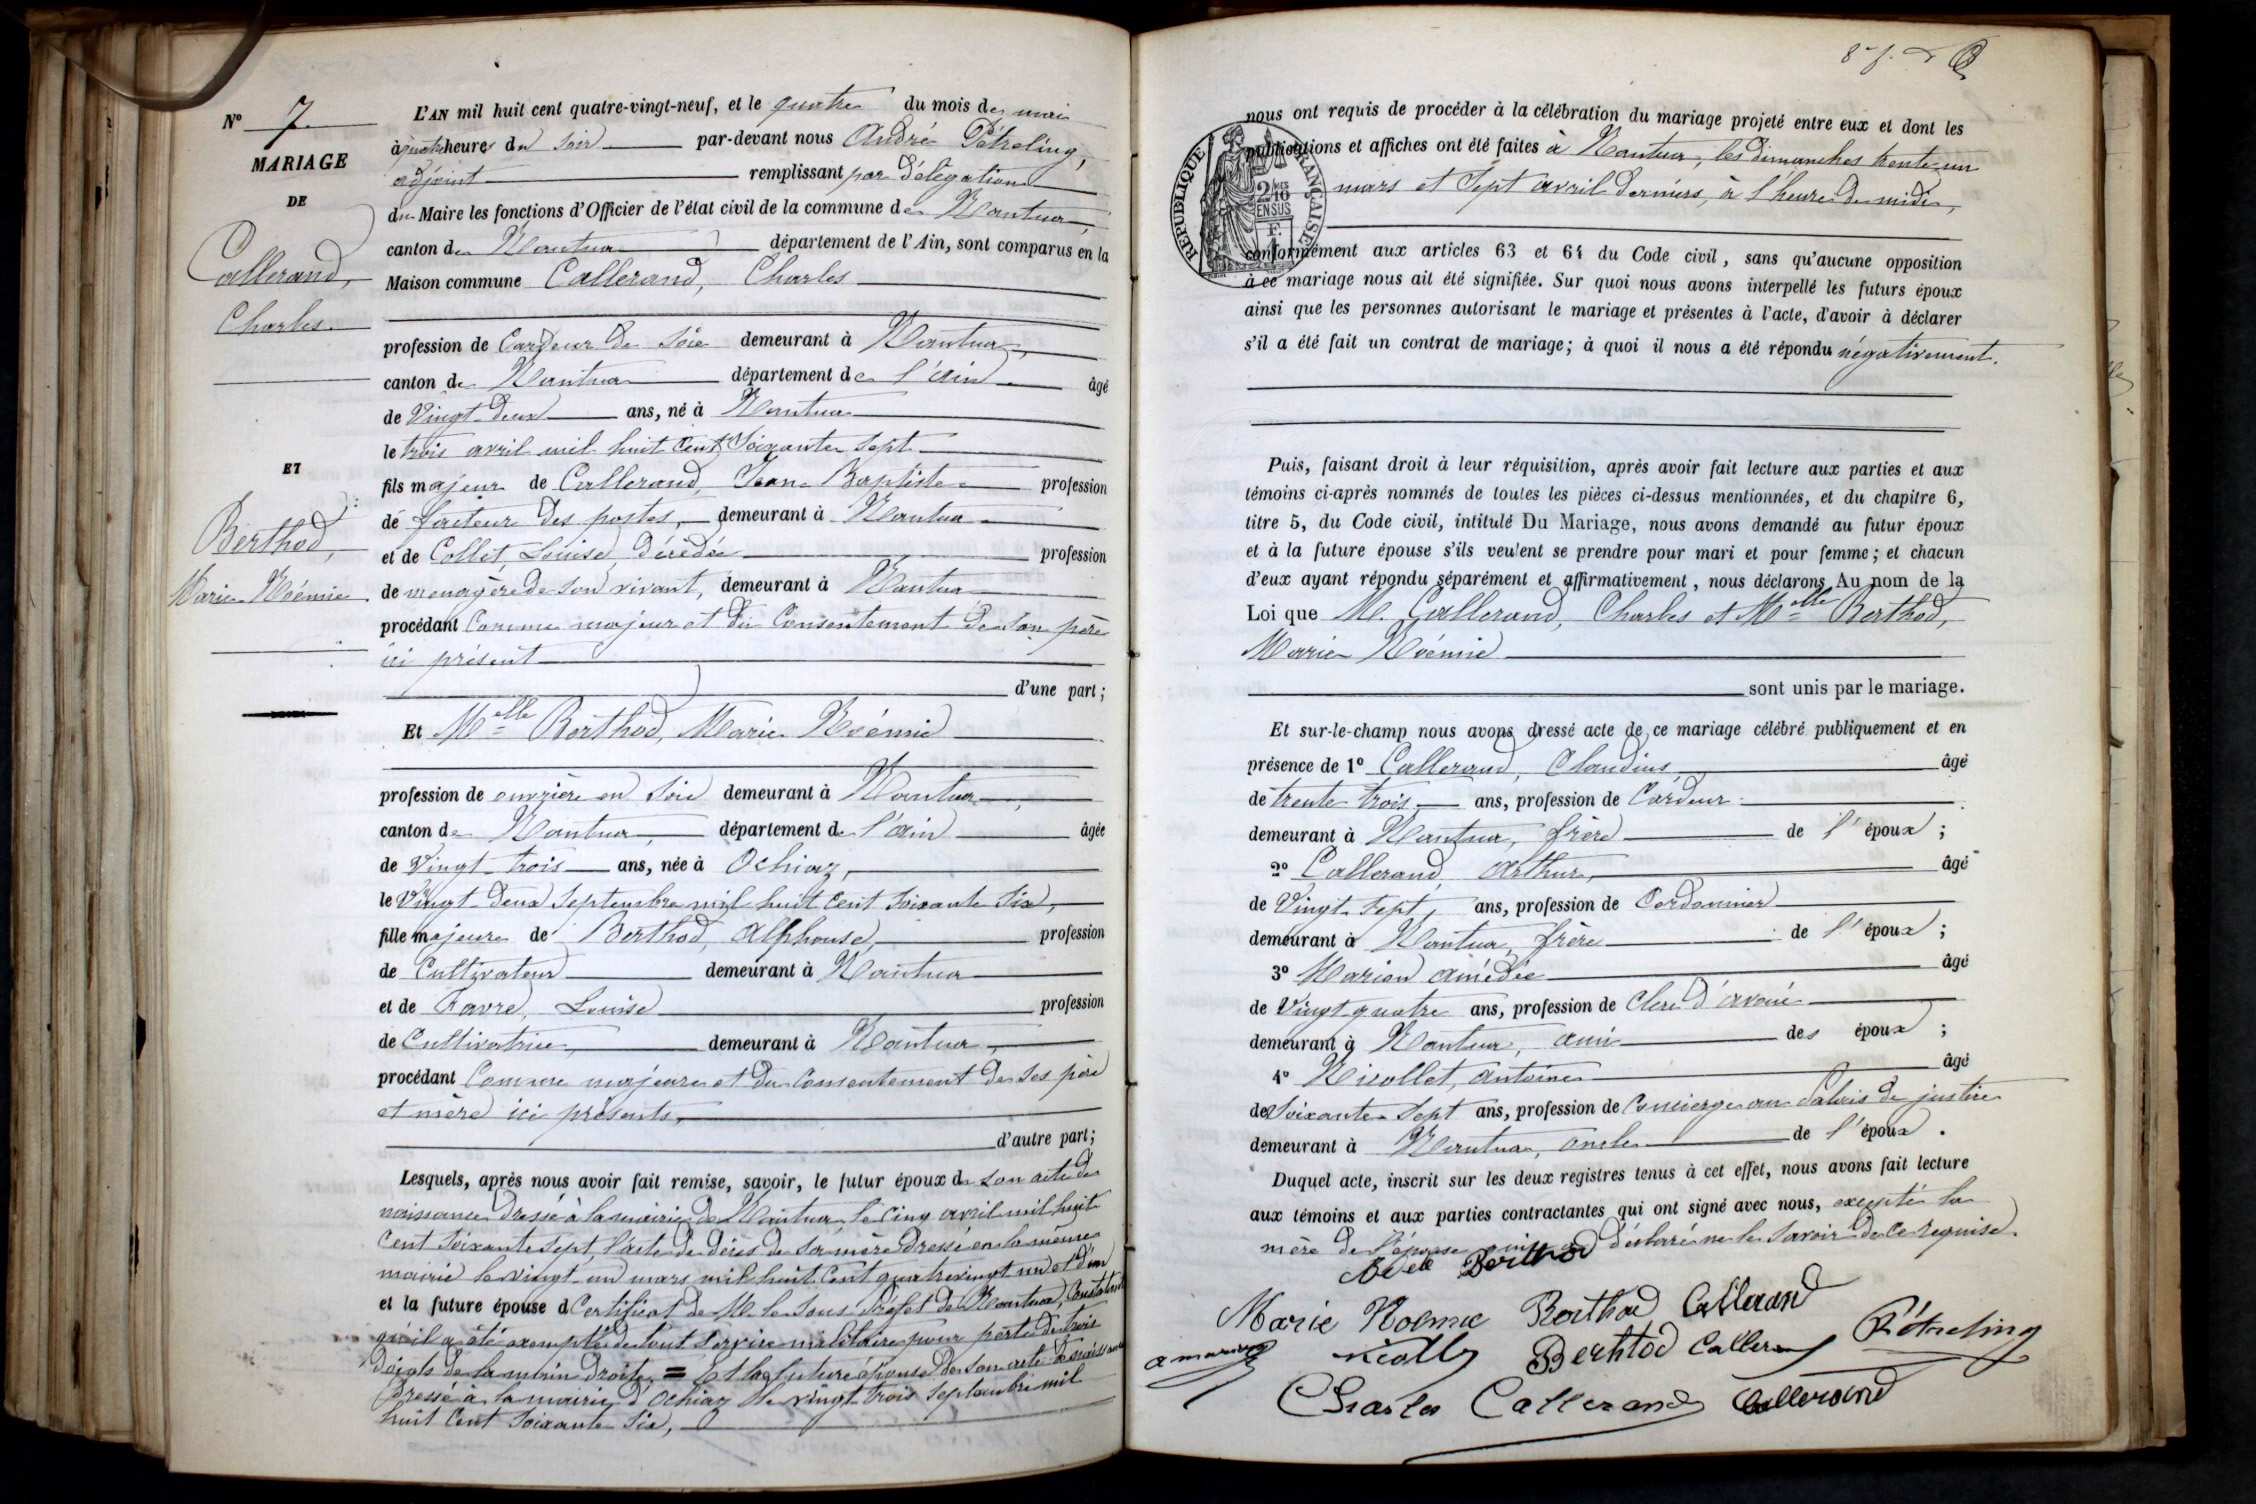 N° 7
MARIAGE
DE
Callerand,
Charles.
ET
Berthod,
Marie Noémie
L'AN mil huit cent quatre-vingt-neuf, et le quatre du mois de mai
à quatre heures du soir par-devant nous André Pétreling,
adjoint remplissant par délégation
du Maire les fonctions d'Officier de l'état civil de la commune de Nantua
canton de Nantua département de l'Ain, sont comparus en la
Maison commune Callerand, Charles
profession de Cardeur de soie demeurant à Nantua,
canton de Nantua département de l'ain âgé
de Vingt deux ans, né à Nantua
le trois avril mil huit cent soixante sept
fils majeur de Callerand, Jean Baptiste profession
de facteur des postes, demeurant à Nantua
et de Collet, Louise, décédée profession
de menagère de son vivant, demeurant à Nantua
procédant Comme majeur et du Consentement de son père
ici présent
d'une part;
Et Melle Berthod, Marie Noémie
profession de ouvrière en soie demeurant à Nantua,
canton de Nantua, département de l'ain âgée
de Vingt trois ans, née à Ochiaz,
le Vingt deux septembre mil huit cent soixante six,
fille majeure de Berthod, Alphonse, profession
de Cultivateur demeurant à Nantua
et de Favre, Louise profession
de Cultivatrice, demeurant à Nantua,
procédant Comme majeure et du consentement de ses père
et mère ici présents,
d'autre part;
Lesquels, après nous avoir fait remise, savoir, le futur époux de son acte de
naissance dressé à la mairie de Nantua le cinq avril mil huit
cent soixante sept, l'acte de décès de sa mère dressé en la même
mairie le vingt-un mars mil huit cent quatrevingt un et d'un
et la future épouse d Certificat de M. le Sous Préfet de Nantua, Constatant
qu'il a été exempté de tout service militaire pour perte de trois
doigts de la main droite. = Et la future épouse de son acte de naissance
dressé à la mairie d'Ochiaz le vingt trois septembre mil
huit cent soixante six,
nous ont requis de procéder à la célébration du mariage projeté entre eux et dont les
publications et affiches ont été faites à Nantua, les dimanches trente-un
mars et sept avril derniers, à l'heure de midi,
RÉPUBLIQUE FRANÇAISE
conformément aux articles 63 et 64 du Code civil, sans qu'aucune opposition
à ce mariage nous ait été signifiée. Sur quoi nous avons interpellé les futurs époux
ainsi que les personnes autorisant le mariage et présentes à l'acte, d'avoir à déclarer
s'il a été fait un contrat de mariage; à quoi il nous a été répondu négativement.
Puis, faisant droit à leur réquisition, après avoir fait lecture aux parties et aux
témoins ci-après nommés de toutes les pièces ci-dessus mentionnées, et du chapitre 6,
titre 5, du Code civil, intitulé Du Mariage, nous avons demandé au futur époux
et à la future épouse s'ils veulent se prendre pour mari et pour femme; et chacun
d'eux ayant répondu séparément et affirmativement, nous déclarons Au nom de la
Loi que M. Callerand, Charles et Melle Berthod,
Marie Noémie
sont unis par le mariage.
Et sur-le-champ nous avons dressé acte de ce mariage célébré publiquement et en
présence de 1° Callerand, Claudius âgé
de trente trois ans, profession de Cardeur
demeurant à Nantua, frère de l'époux;
2° Callerand Arthur, âgé
de Vingt sept, ans, profession de Cordonnier
demeurant à Nantua, frère de l'époux;
3° Marion Amédée âgé
de Vingt quatre ans, profession de Clerc d'avoué
demeurant à Nantua, ami des époux;
4° Nicollet, Antoine âgé
de soixante sept ans, profession de Concierge au Palais de justice
demeurant à Nantua, oncle de l'époux.
Duquel acte, inscrit sur les deux registres tenus à cet effet, nous avons fait lecture
aux témoins et aux parties contractantes qui ont signé avec nous, excepté la
mère de l'épouse qui a déclaré ne le savoir de ce requise.
Berthod
Marie Noémie Berthod Callerand
Berhtod Callerand Pétreling
Charles Callerand Callerand